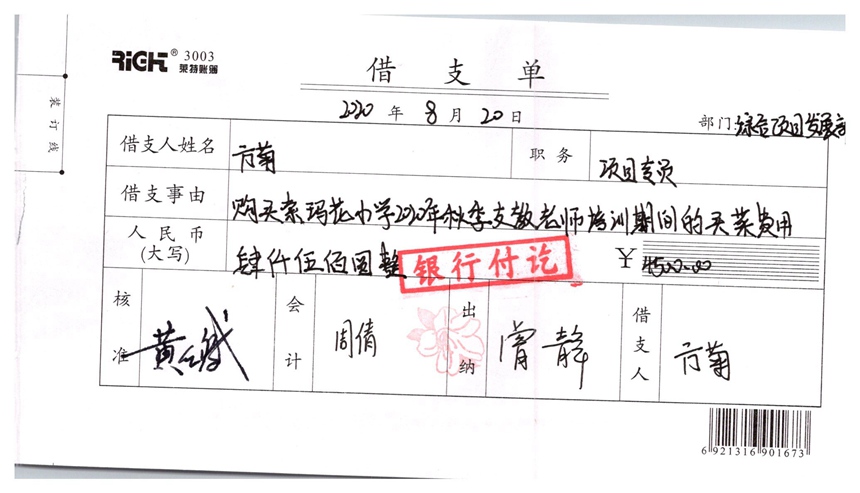 RiGHT® 3003
莱特账簿
借支单
2020年8月20日
部门 综合项目发展部
装订线
借支人姓名 方菊 职务 项目专员
借支事由 购买索玛花小学2020年秋季支教老师培训期间的买菜费用
人民币(大写) 肆仟伍佰圆整 ¥ 4500.00
银行付讫
核准 黄 会计 周倩 出纳 曾静 借支人 方菊
6 921316 901673